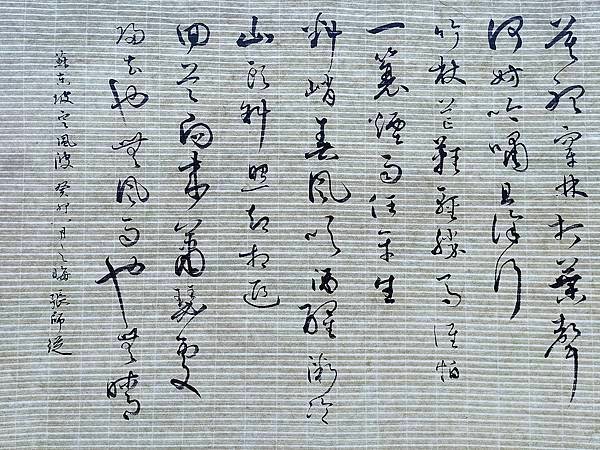 莫聽穿林打葉聲
何妨吟嘯且徐行
竹杖芒鞋輕勝馬誰怕
一蓑煙雨任平生
料峭春風吹酒醒微冷
山頭斜照卻相迎
回首向來蕭瑟處
歸去也無風雨也無晴
蘇東坡定風波 癸卯八月之晦 張師從